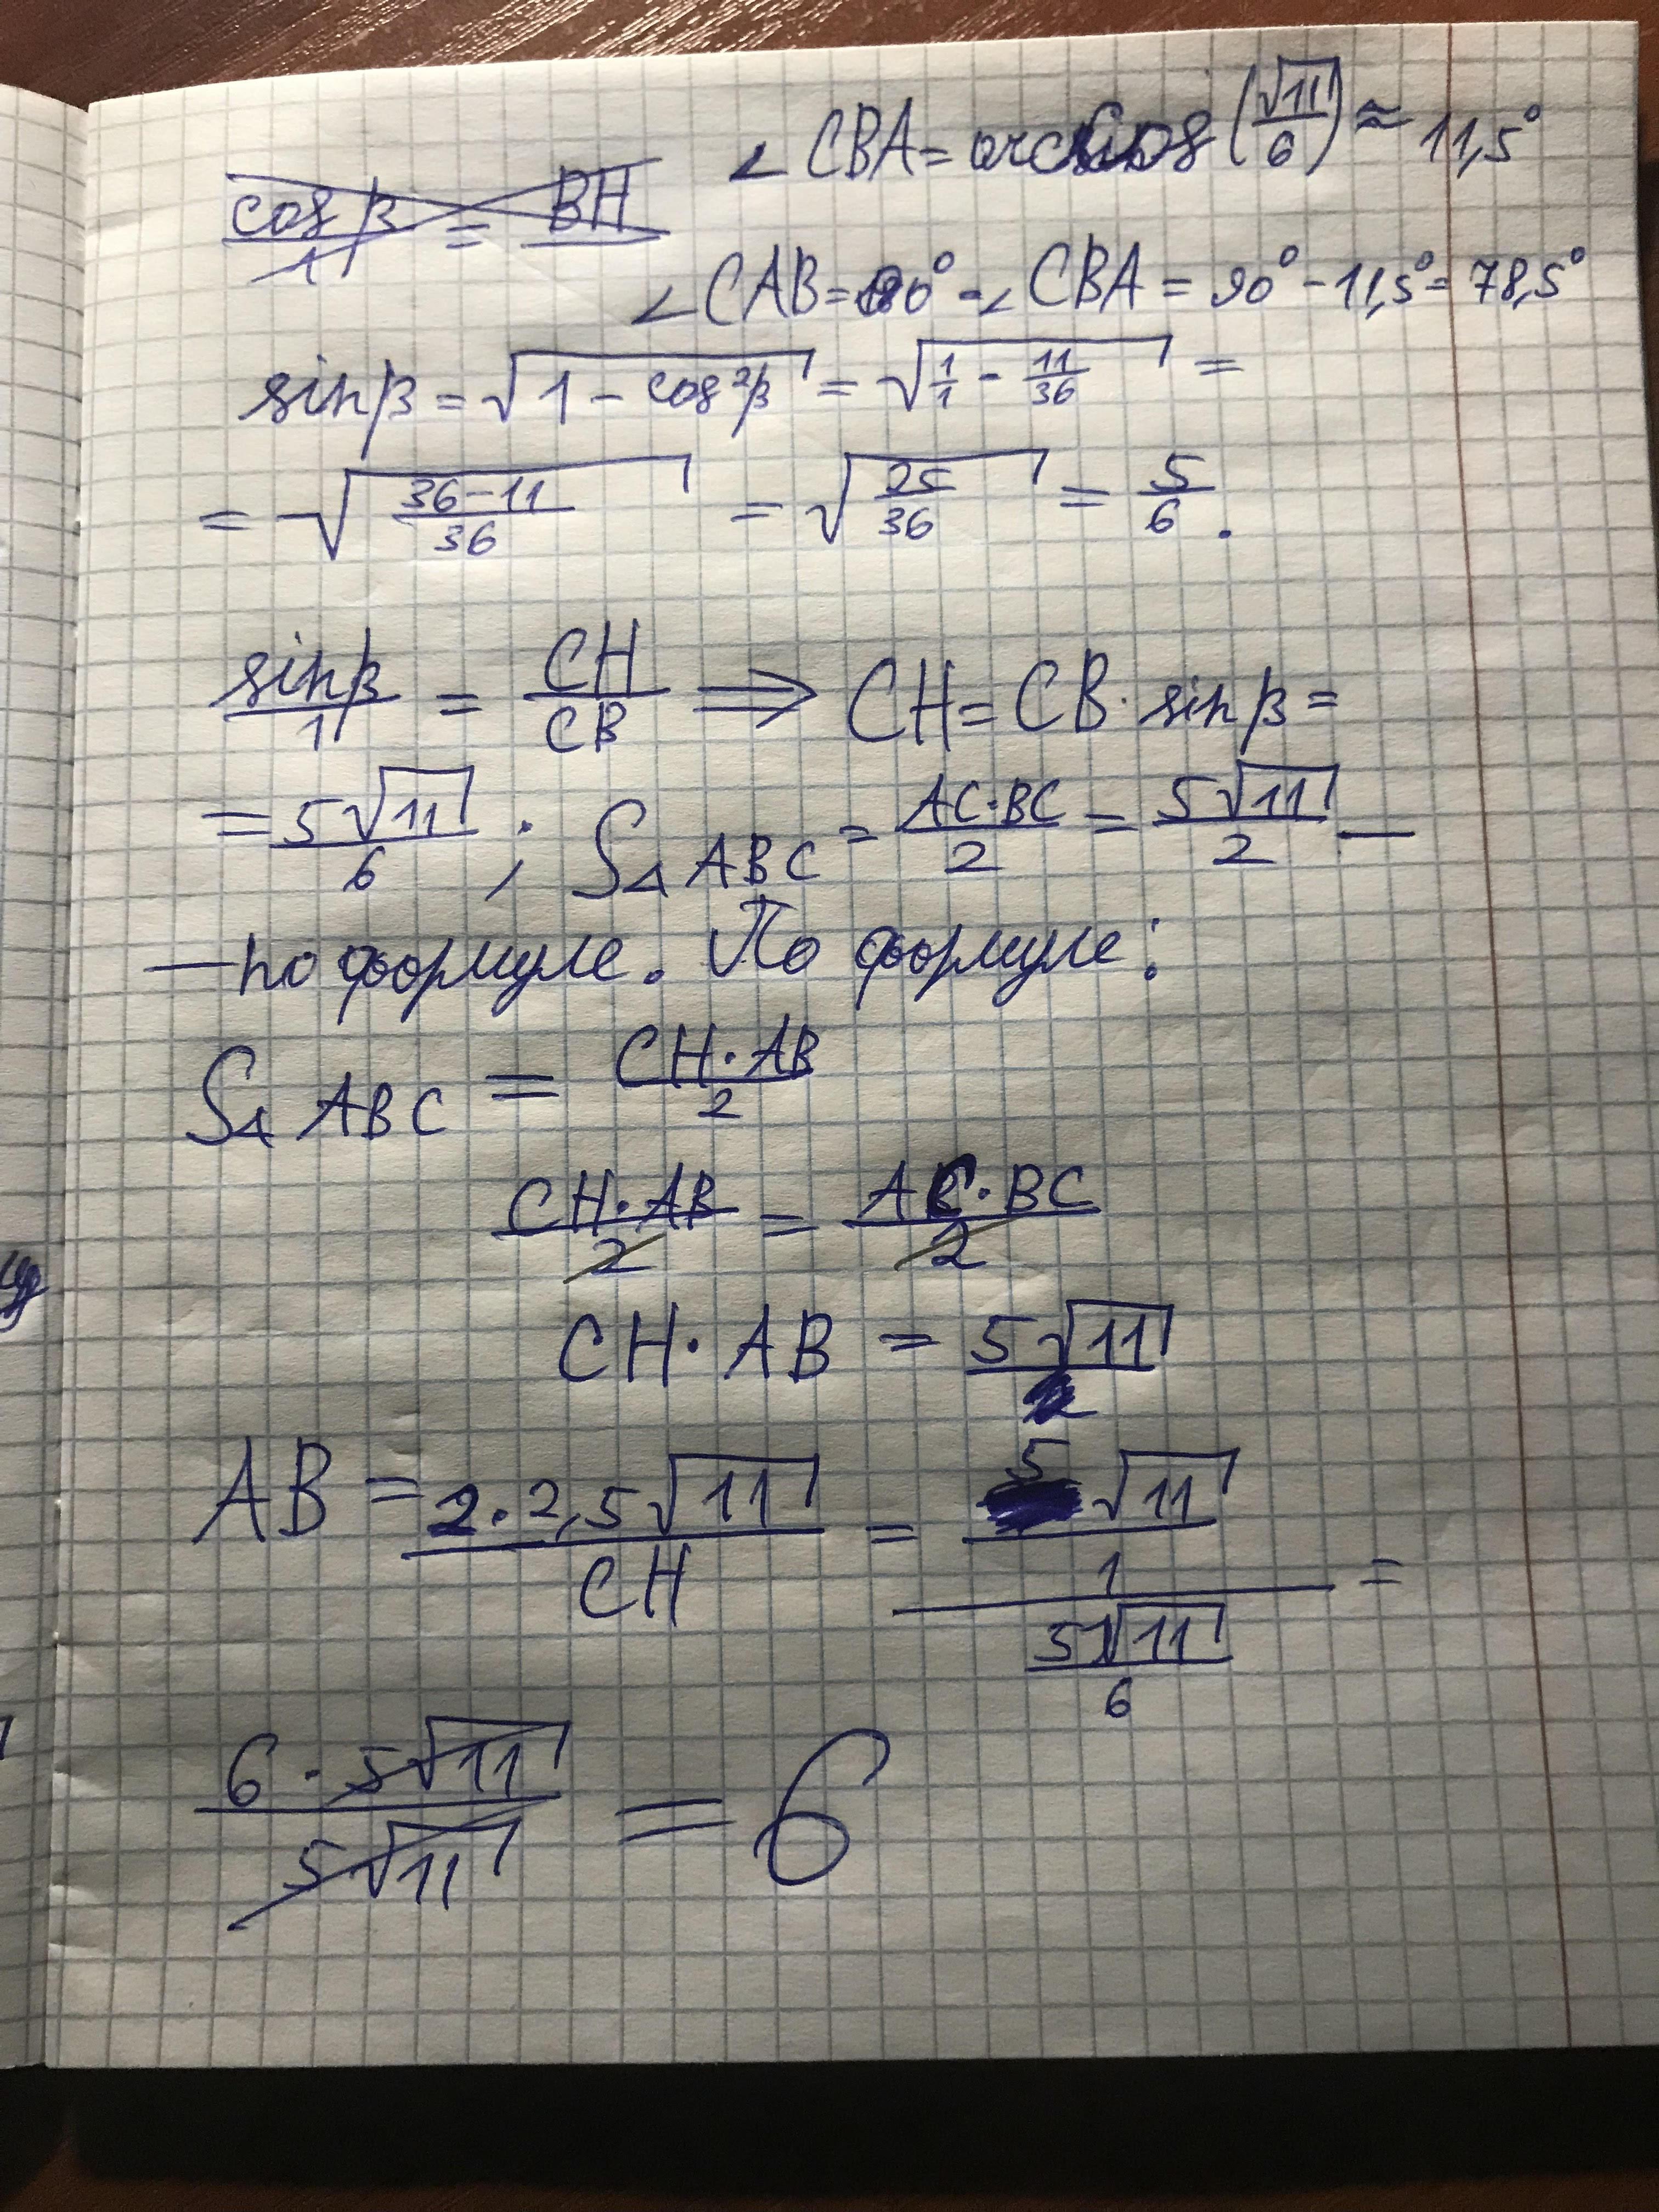 ∠CBA = arccos(√11/6) ≈ 11,5°
cosβ/1 = BH
∠CAB = 90° - ∠CBA = 90° - 11,5° = 78,5°
sinβ = √(1 - cos²β) = √(1/1 - 11/36) =
= √((36-11)/36) = √(25/36) = 5/6.
sinβ/1 = CH/CB ⟹ CH = CB · sinβ =
= 5√11/6 ; S△ABC = AC·BC/2 = 5√11/2 —
— по формуле. По формуле:
S△ABC = CH·AB/2
CH·AB/2 = AC·BC/2
CH·AB = 5√11
AB = 2·2,5√11/CH = (5√11/1)/(5√11/6) =
6·5√11/5√11 = 6